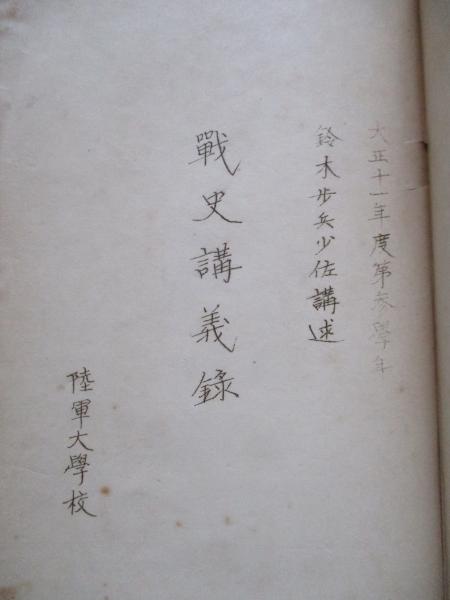 大正十一年度第参學年
鈴木歩兵少佐講述
戰史講義錄
陸軍大學校